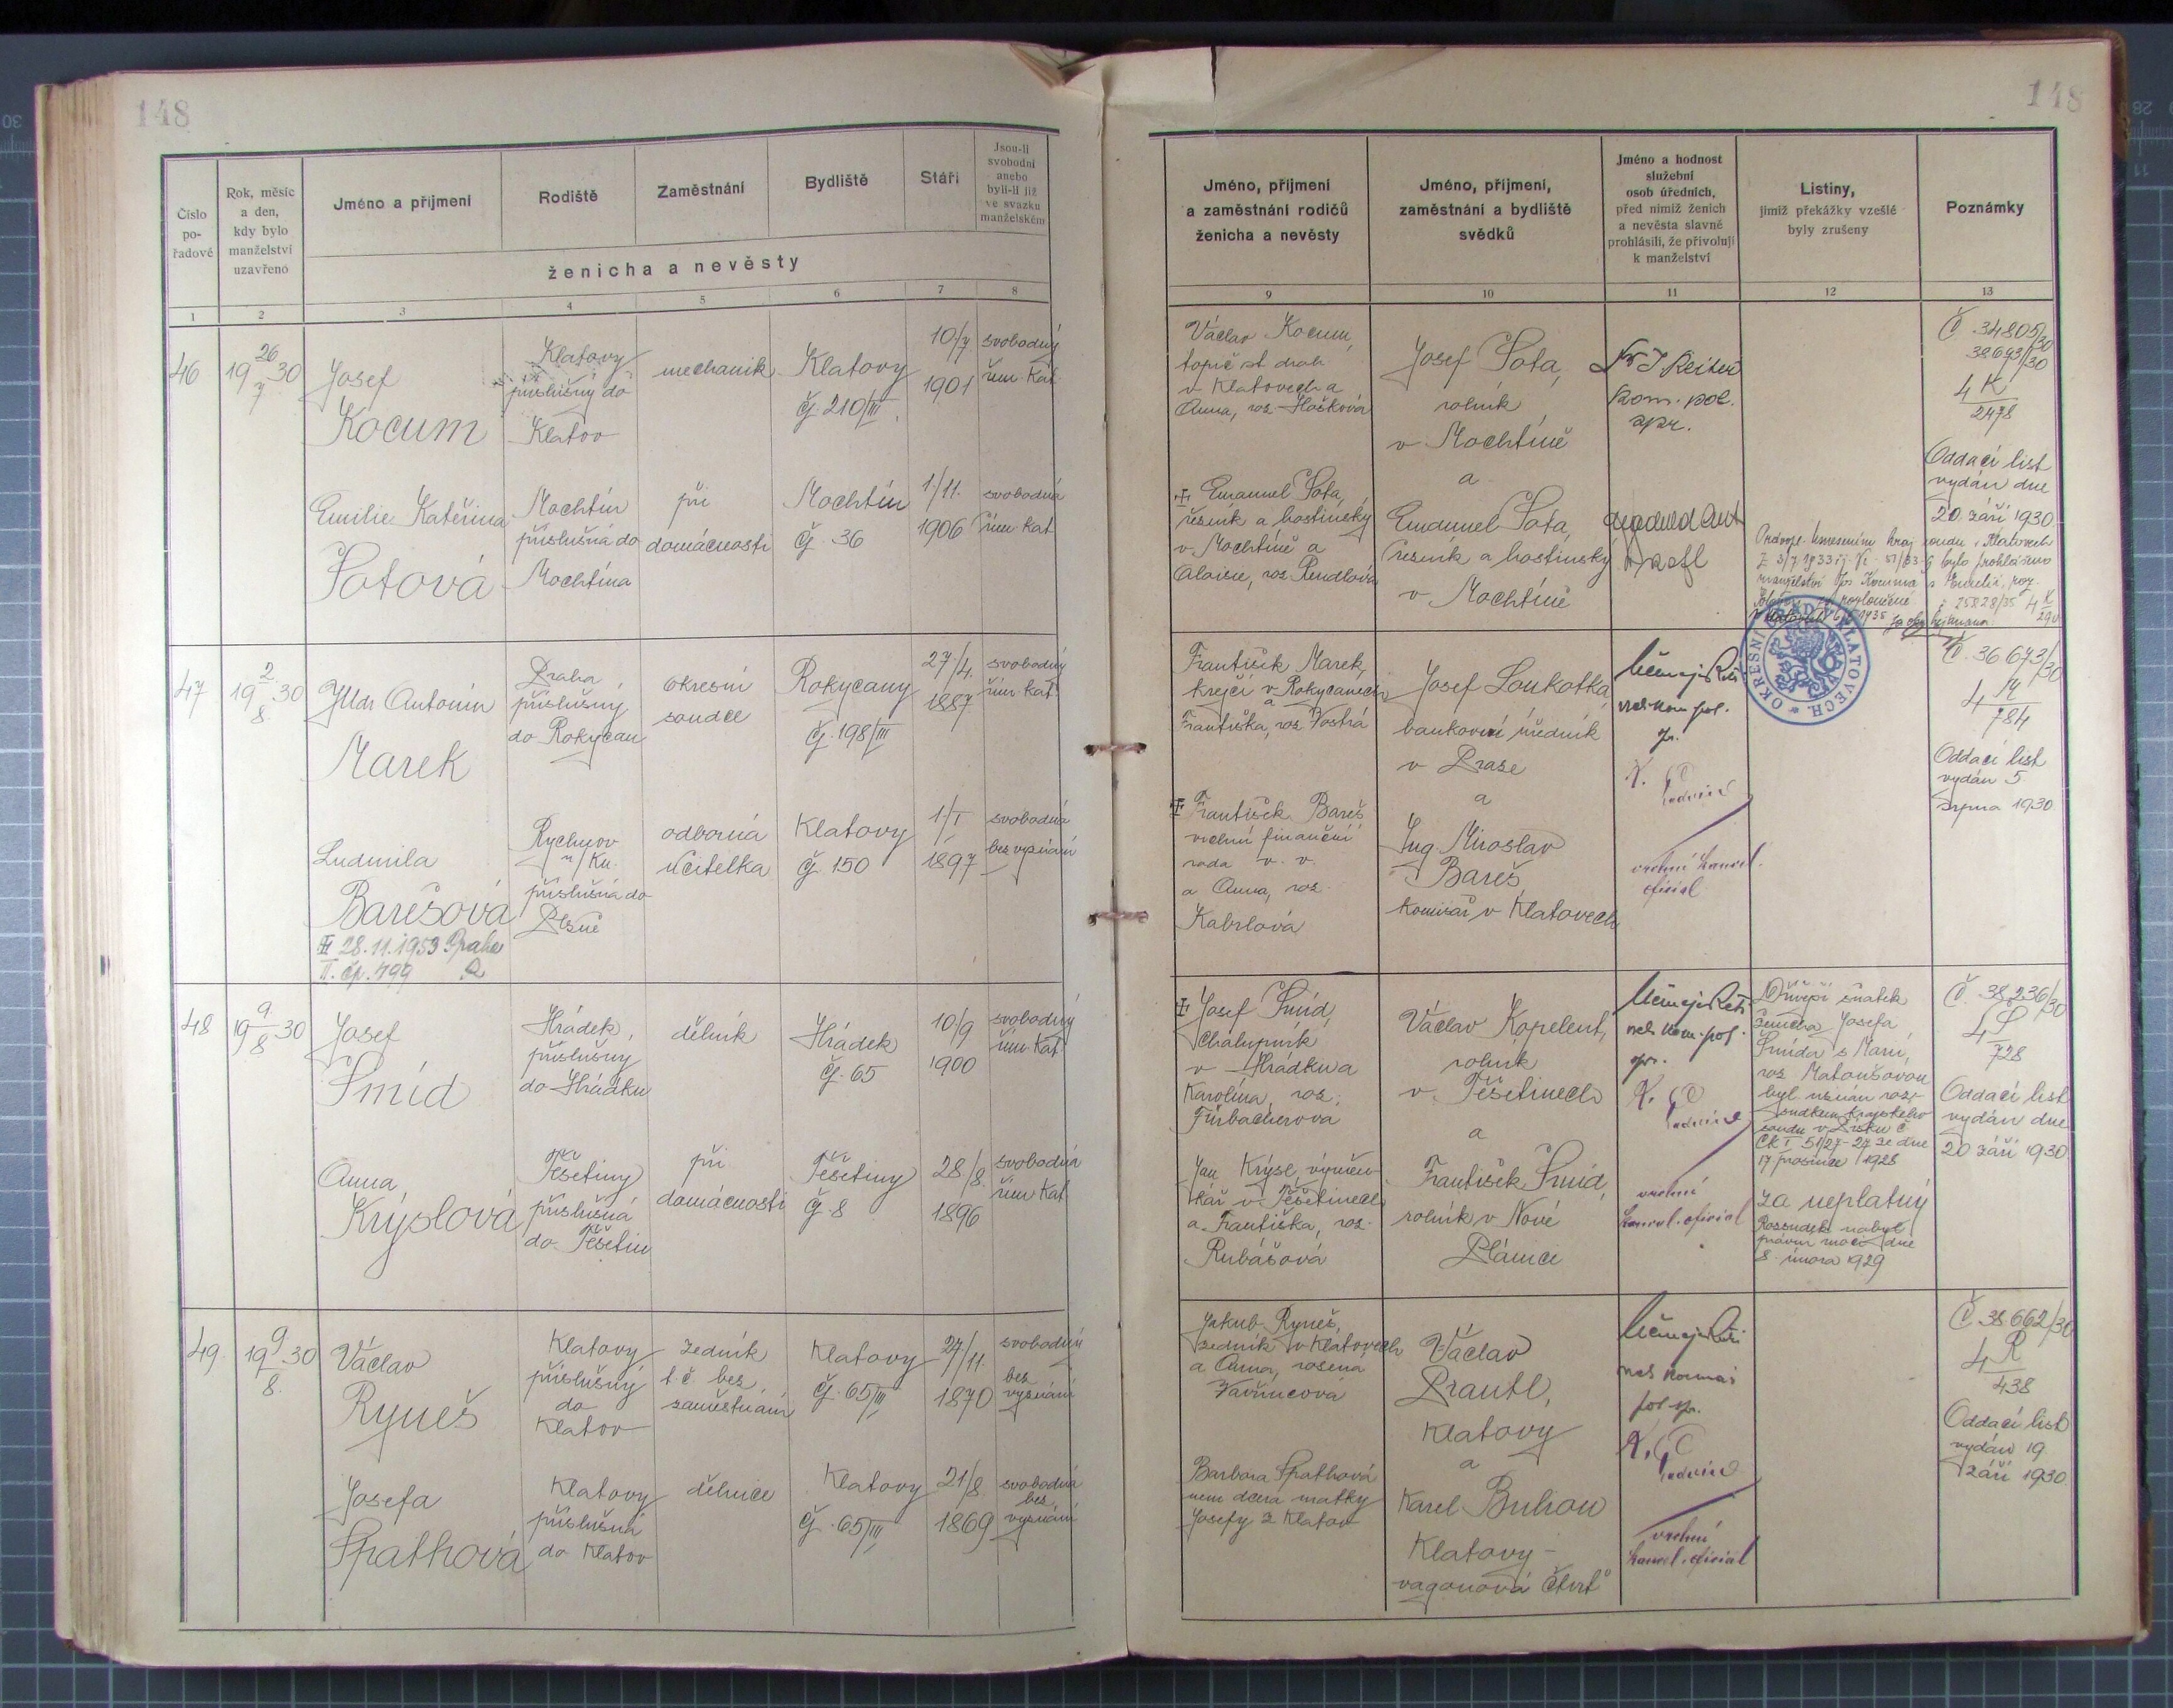 148
148
Číslo
po-
řadové
Rok, měsíc
a den,
kdy bylo
manželství
uzavřeno
Jméno a příjmení
Rodiště
Zaměstnání
Bydliště
Stáří
Jsou-li
svobodni
anebo
byli-li již
ve svazku
manželském
ženicha a nevěsty
1
2
3
4
5
6
7
8
Jméno, příjmení
a zaměstnání rodičů
ženicha a nevěsty
Jméno, příjmení,
zaměstnání a bydliště
svědků
Jméno a hodnost
služební
osob úředních,
před nimiž ženich
a nevěsta slavně
prohlásili, že přivolují
k manželství
Listiny,
jimiž překážky vzešlé
byly zrušeny
Poznámky
9
10
11
12
13
46
19 26/7 30
Josef
Kocum
Klatovy
příslušný do
Klatov
mechanik
Klatovy
č. 210/III
10/7
1901
svobodný
řím kat
Emilie Kateřina
Šotová
Mochtín
příslušná do
Mochtína
při
domácnosti
Mochtín
č. 36
1/11.
1906
svobodná
řím kat
Václav Kocum,
topič st drah
v Klatovech a
Anna, roz. Hošková
Emanuel Šota,
řezník a hostinský
v Mochtíně a
Aloisie, roz. Rendlová
Josef Šota,
rolník
v Mochtíně
a
Emanuel Šota,
řezník a hostinský
v Mochtíně
kom. pol.
spr.
Č 34805/30
38693/30
4 K
2478
Oddací list
vydán dne
20. září 1930
OKRESNÍ ÚŘAD V KLATOVECH
47
19 2/8 30
JUDr Antonín
Marek
Praha,
příslušný
do Rokycan
okresní
soudce
Rokycany
č. 198/III
27/4.
1887
svobodný
řím kat.
Ludmila
Barešová
28.11.1953 Praha
II. čp. 499
Rychnov
n/Kn.
příslušná do
Plzně
odborná
učitelka
Klatovy
č 150
1/I
1897
svobodná
bez vyznání
František Marek,
krejčí v Rokycanech
a
Františka, roz. Vostrá
František Bareš
vrchní finanční
rada v. v.
a Anna, roz.
Kabrlová
Josef Loukotka,
bankovní úředník
v Praze
a
Ing Miroslav
Bareš,
komisař v Klatovech
vrchní kancel.
oficial
Č. 36673/30
4 M
784
Oddací list
vydán 5
srpna 1930
48
19 9/8 30
Josef
Šmíd
Hrádek,
příslušný
do Hrádku
dělník
Hrádek
č. 65
10/9
1900
svobodný
řím kat.
Anna
Krýslová
Těšetiny
příslušná
do Těšetin
při
domácnosti
Těšetiny
č. 8
28/8.
1896
svobodná
řím kat
Josef Šmíd,
chalupník
v Hrádku a
Karolína, roz.
Fürbacherova
Jan Krýsl, výměn-
kář v Těšetinech
a Františka, roz.
Rubášová
Václav Kopelent,
rolník
v Těšetinech
a
František Šmíd,
rolník v Nové
Plánici
vrchní
kancel. oficial
Dřívější sňatek
ženicha Josefa
Šmída s Marií,
roz Matoušovou
byl uznán roz-
sudkem krajského
soudu v Písku č
Ck I 51/27-27 ze dne
17 prosince 1928
za neplatný
Rozsudek nabyl
právní moci dne
8. února 1929
Č. 38236/30
4 S
728
Oddací list
vydán dne
20 září 1930
49.
19 9/8. 30
Václav
Ryneš
Klatovy
příslušný
do
Klatov
zedník
t. č. bez
zaměstnání
Klatovy
č. 65/III
27/11.
1870
svobodný
bez
vyznání
Josefa
Spathová
Klatovy
příslušná
do Klatov
dělnice
Klatovy
č. 65/III
21/8.
1869
svobodná
bez
vyznání
Jakub Ryneš,
zedník v Klatovech
a Anna, rozená
Vavřincová
Barbora Spathová
nem dcera matky
Josefy z Klatov
Václav
Prantl,
Klatovy
a
Karel Buhou
Klatovy -
vagonová čtvrť
vrchní
kancel. oficial
Č 38662/30
4 R
438
Oddací list
vydán 19.
září 1930.